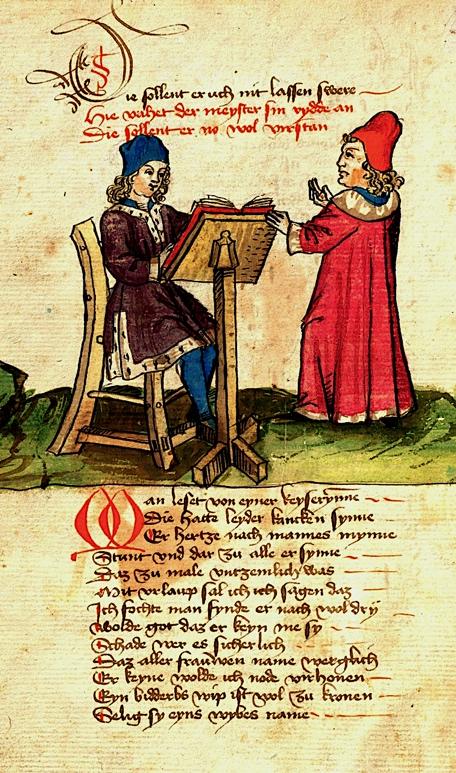 Sie sollent er uch nit lassen swere
Hie vahet der meyster sin rydde an
Die sollent er no wol virstan
Man leset von eyner keyserynne
Die hatte leyder krancken synne
Er hertze nach mannes mynne
Stunt vnd dar zu alle er synne
Daz zu male vntzemlich was
Mit vrlaup sal ich ich sagen daz
Ich fochte man fynde er nach wol dry
wolde got daz er keyn me sy
Schade wer es sicherlich
Daz aller frauwen name
Er keyne wolde ich node virhonen
Eyn bidderbs wip ist wol zu kronen
Selig sy eyns wybes name